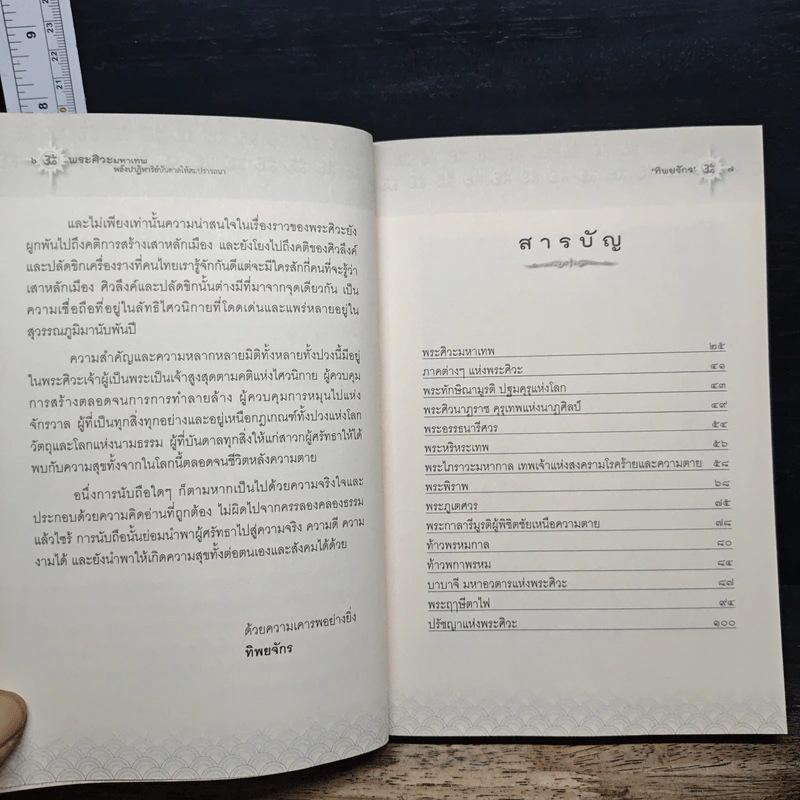 9
8
23
22
21
๖
พระศิวะมหาเทพ
พลังปาฏิหาริย์บันดาลให้สมปรารถนา
และไม่เพียงเท่านั้นความน่าสนใจในเรื่องราวของพระศิวะยัง
ผูกพันไปถึงคติการสร้างเสาหลักเมือง และยังโยงไปถึงคติของศิวลึงค์
และปลัดขิกเครื่องรางที่คนไทยเรารู้จักกันดีแต่จะมีใครสักกี่คนที่จะรู้ว่า
เสาหลักเมือง ศิวลึงค์และปลัดขิกนั้นต่างมีที่มาจากจุดเดียวกัน เป็น
ความเชื่อถือที่อยู่ในลัทธิไศวนิกายที่โดดเด่นและแพร่หลายอยู่ใน
สุวรรณภูมิมานับพันปี
ความสำคัญและความหลากหลายมิติทั้งหลายทั้งปวงนี้มีอยู่
ในพระศิวะเจ้าผู้เป็นพระเป็นเจ้าสูงสุดตามคติแห่งไศวนิกาย ผู้ควบคุม
การสร้างตลอดจนการการทำลายล้าง ผู้ควบคุมการหมุนไปแห่ง
จักรวาล ผู้ที่เป็นทุกสิ่งทุกอย่างและอยู่เหนือกฎเกณฑ์ทั้งปวงแห่งโลก
วัตถุและโลกแห่งนามธรรม ผู้ที่บันดาลทุกสิ่งให้แก่สาวกผู้ศรัทธาให้ได้
พบกับความสุขทั้งจากในโลกนี้ตลอดจนชีวิตหลังความตาย
อนึ่งการนับถือใดๆ ก็ตามหากเป็นไปด้วยความจริงใจและ
ประกอบด้วยความคิดอ่านที่ถูกต้อง ไม่ผิดไปจากครรลองคลองธรรม
แล้วไซร้ การนับถือนั้นย่อมนำพาผู้ศรัทธาไปสู่ความจริง ความดี ความ
งามได้ และยังนำพาให้เกิดความสุขทั้งต่อตนเองและสังคมได้ด้วย
ด้วยความเคารพอย่างยิ่ง
ทิพยจักร
"ทิพยจักร" ๗
สารบัญ
พระศิวะมหาเทพ ๒๕
ภาคต่างๆ แห่งพระศิวะ ๔๑
พระทักษิณามูรติ ปฐมคุรุแห่งโลก ๔๓
พระศิวนาฏราช คุรุเทพแห่งนาฏศิลป์ ๔๙
พระอรรธนารีศวร ๕๔
พระหริหระเทพ ๕๖
พระไภราวะมหากาล เทพเจ้าแห่งสงครามโรคร้ายและความตาย ๕๘
พระพิราพ ๖๘
พระภูเตศวร ๗๕
พระกาลารีมูรติผู้พิชิตชัยเหนือความตาย ๗๘
ท้าวพรหมกาล ๘๐
ท้าวพกาพรหม ๘๕
บาบาจี มหาอวตารแห่งพระศิวะ ๘๗
พระฤาษีตาไฟ ๙๔
ปรัชญาแห่งพระศิวะ ๑๐๐